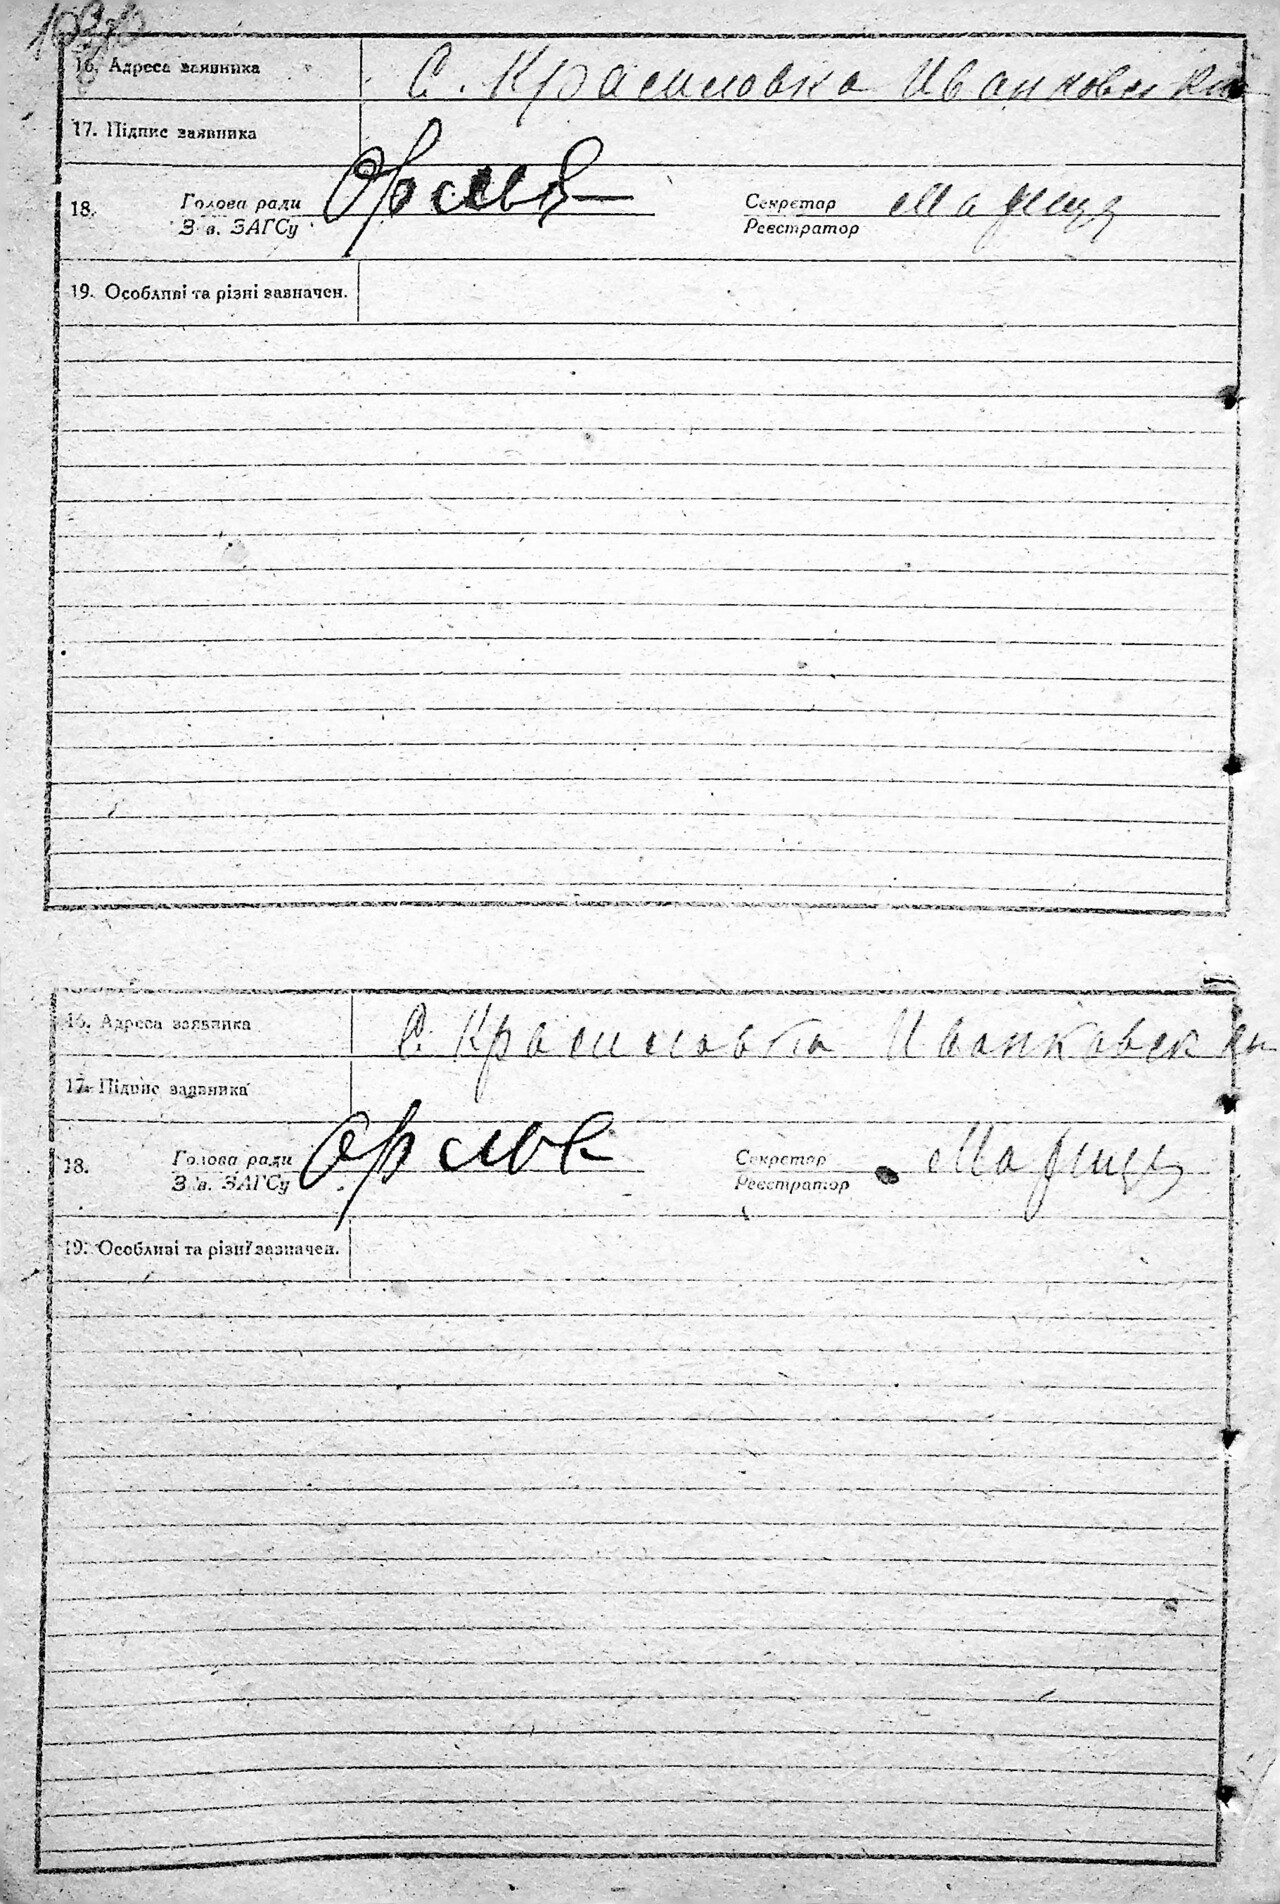 16. Адреса заявника С. Красиловка Иванковски
17. Підпис заявника
18. Голова ради Секретар
Зав. ЗАГСу Реєстратор
19. Особливі та різні зазначен.
16. Адреса заявника С. Красиловка Иванковски
17. Підпис заявника
18. Голова ради Секретар
Зав. ЗАГСу Реєстратор
19. Особливі та різні зазначен.